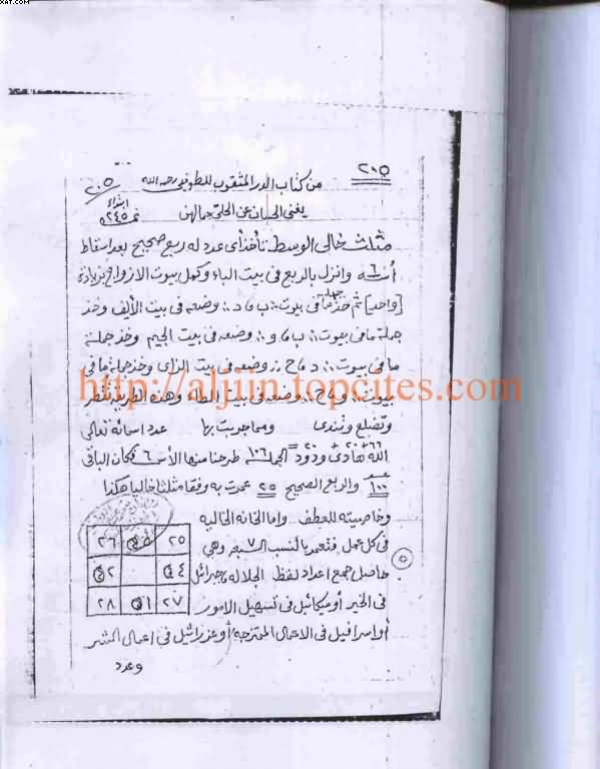 XAT.COM
٢٠٥
من كتاب الدر المثقوب للطوفي رحمه الله
٢٠٥
يغني الحسان عن الحلي جمالهن
ابتداء
مثلث خالي الوسط. تأخذ أي عدد له ربع صحيح بعد اسقاط
أسه ٦ وانزل بالربع في بيت الباء وكمل بيوت الازواج بزيادة
[واحد] ثم خذ جملة ما في بيوت :: ب ٨ د :: وضعه في بيت الألف وخذ
جملة ما في بيوت :: ب ٨ و :: وضعه في بيت الجيم وخذ جملة
ما في بيوت :: د ٨ ح :: وضعه في بيت الزاى وخذ جملة ما في
بيوت :: و ٨ ح :: وضعه في بيت الطاء وهذه الطريقة
http://aljiin.topcites.com
ومما جربت بها عدد اسمائه تعالى
٦٦ + ٢٠ + ٢٠
الله هادى ودود = الجملة ١٠٦ طرحنا منها الأس ٦ فكان الباقي
١٠٠ والربع الصحيح ٢٥ عمرت به وفقا مثلثا خاليا هكذا
وخاصيته للعطف واما الخانة الخالية
في كل عمل فتعمر بالنسب ال٧ السبعة وهي
٢٦ ٢٥
حاصل جمع اعداد لفظ الجلالة وجبرائيل
٥٢
في الخير أو ميكائيل في تسهيل الامور
٢٨ ٥١ ٢٧
أو اسرافيل في الاعمال الممتزجة أو عزرائيل في اعمال الشر
وعدد